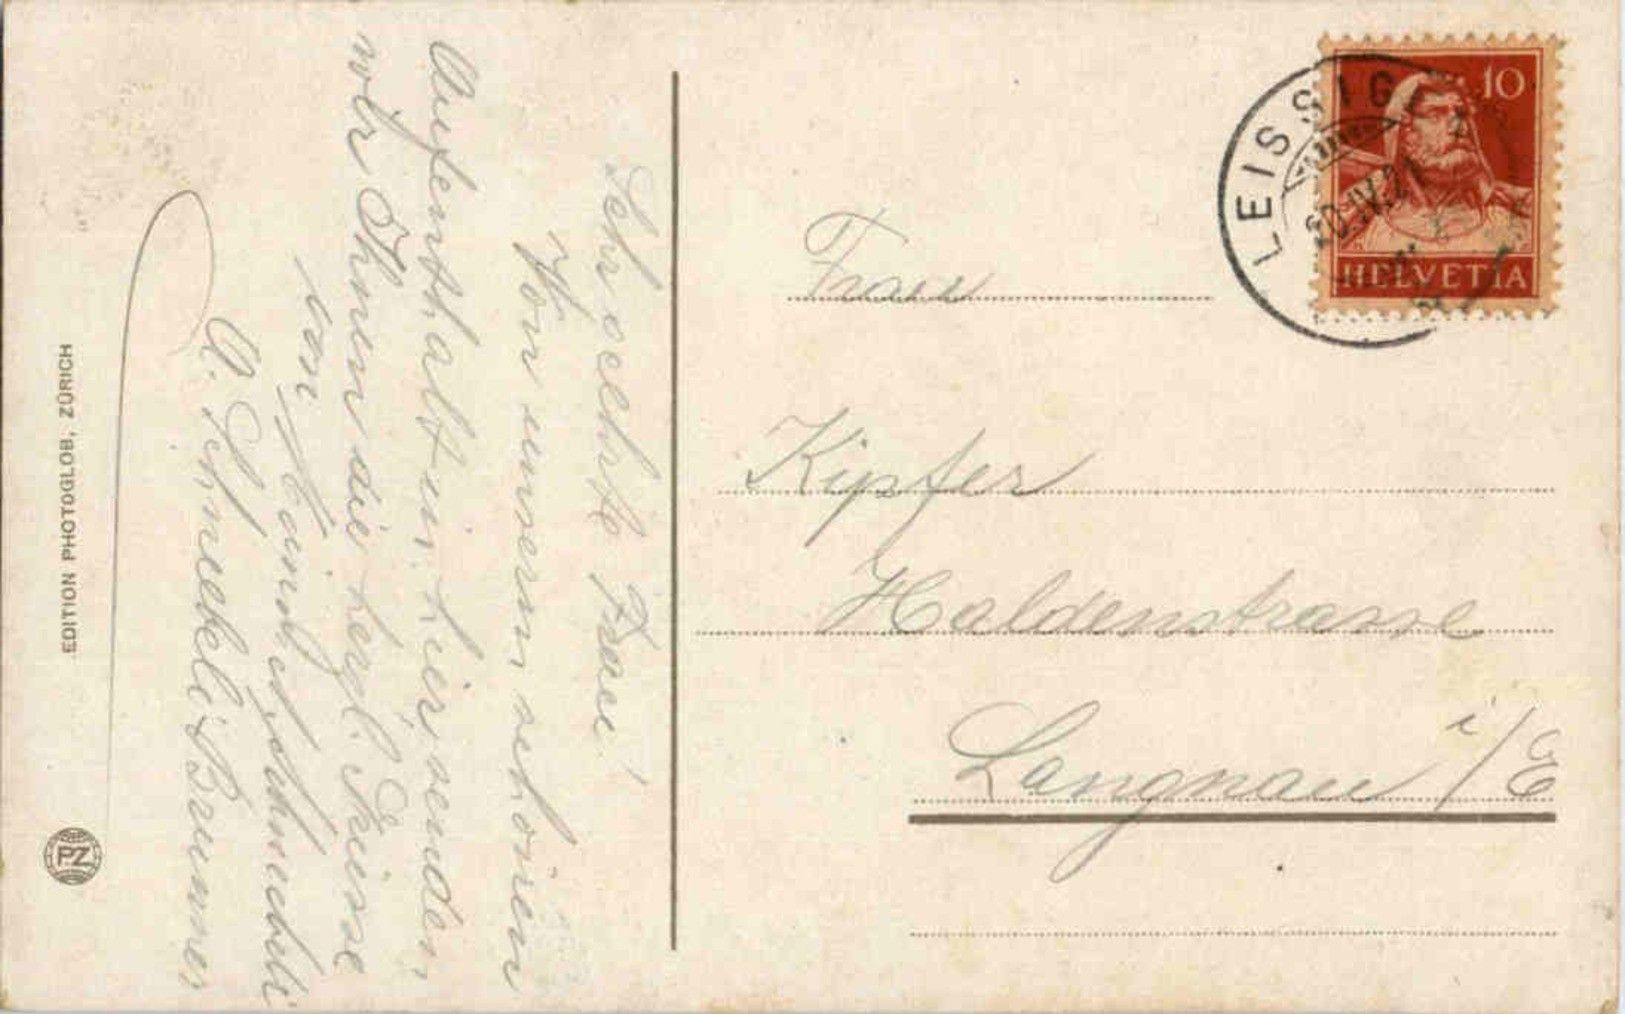 Sehr geehrte Frau!
Von unserm schönen
Aufenthalt in hier senden
wir Ihnen die herzl. Grüsse
von
A. Brunner
EDITION PHOTOGLOB, ZÜRICH
PZ
LEISSIGEN
20.IV.21
10
HELVETIA
Frau
Kipfer
Haldenstrasse
Langnau i/E